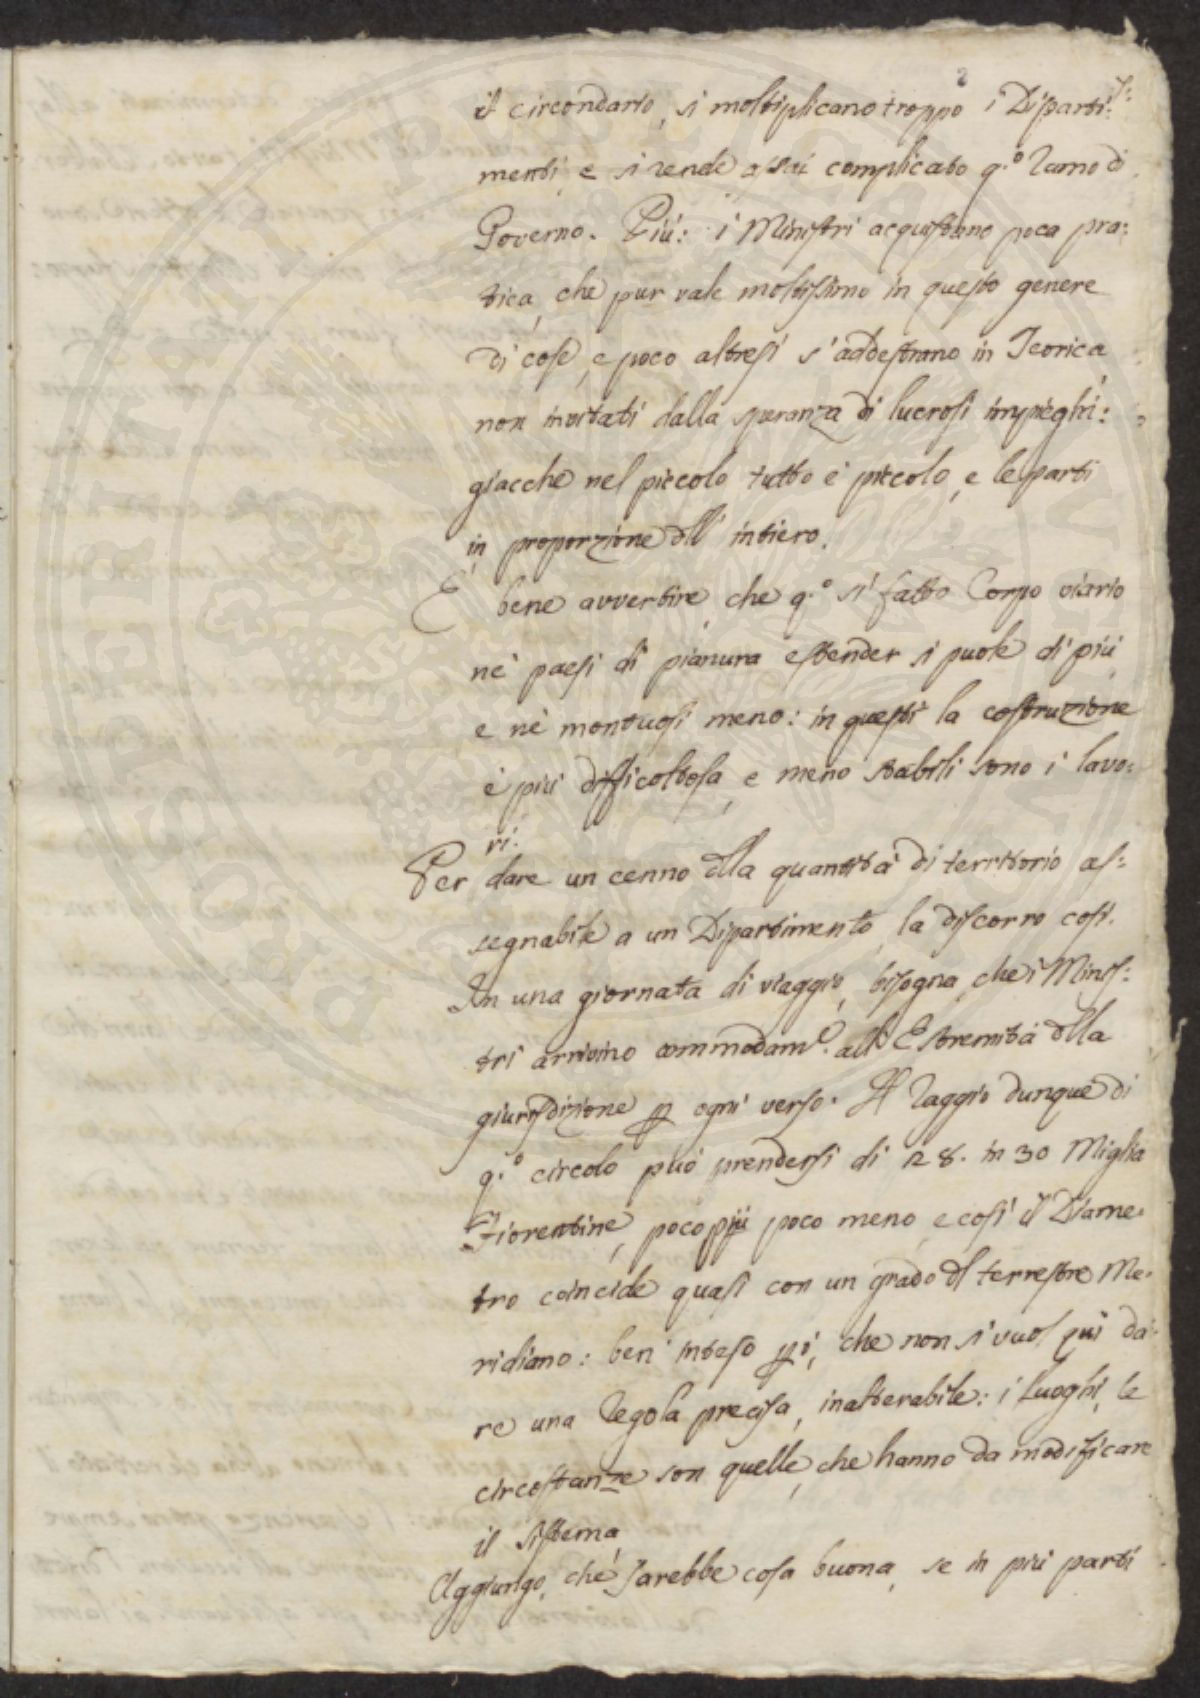 2
il circondario, si moltiplicano troppo i Diparti:
menti, e si rende assai complicato q.º Ramo di
Governo. Più: i Ministri acquistano poca pra:
tica, che pur vale moltissimo in questo genere
di cose, e poco altresì s'addestrano in Teorica,
non invitati dalla speranza di lucrosi impieghi:
giacche nel piccolo tutto è piccolo, e le parti
in proporzione dll' intiero.
E' bene avvertire, che q.º si fatto Corpo viario
nè paesi di pianura estender si puole di più,
e nè montuosi meno: in questi la costruzione
è più difficoltosa, e meno stabili sono i lavo:
ri.
Per dare un cenno dlla quantità di territorio as:
segnabile a un Dipartimento, la discorro così.
In una giornata di viaggio, bisogna, che i Minis:
tri arrivino commodam.e all' Estremità dlla
giurisdizione p ogni verso. Il Raggio dunque di
q.º circolo può prendersi di 28. in 30 Miglia
Fiorentine, poco più poco meno, e così il Diame:
tro coincide quasi con un grado dl terrestre Me:
ridiano: ben inteso pò, che non si vuol qui da:
re una Regola precisa, inalterabile: i Luoghi, le
circostanze son quelle, che hanno da modificare
il sistema.
Aggiungo, che sarebbe cosa buona, se in più parti
PROSPERITATI PUBLICAE AUGENDAE